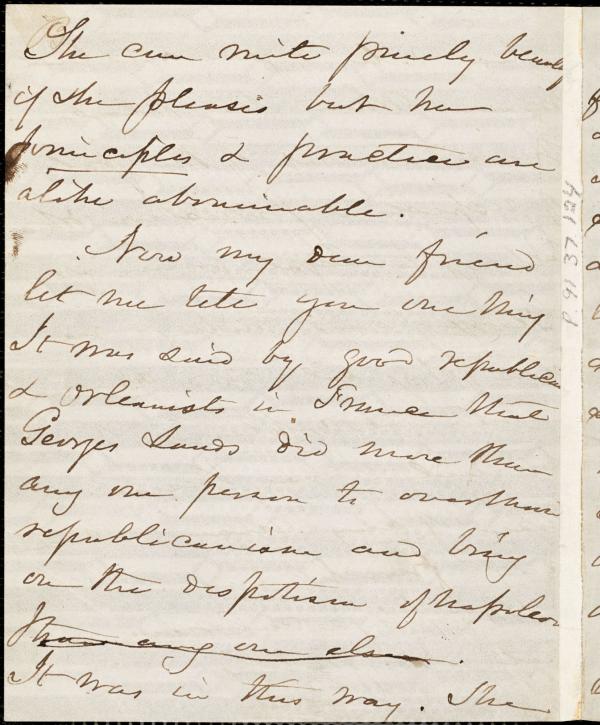 She can write purely
if she pleases but her
principles & practice are
alike abominable.
Now my dear friend
let me tell you one thing
It was said by good republican
& Orleanists in France that
Georges Sands did more than
any one person to overthrow
republicanism and bring
on the despotism of Napoleon
than any one else.
It was in this way. She
P. 91. 37. 124